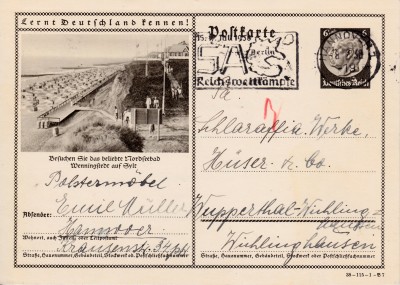 Lernt Deutschland kennen!
Postkarte
15.-17. Juli 1938
Berlin
Reichswettkämpfe
HANNOVER
6 6
Deutsches Reich
Besuchen Sie das beliebte Nordseebad
Wenningstedt auf Sylt
Polstermöbel
Absender: Emil Müller
Hannover
Wohnort, auch Zustell- oder Leitpostamt
Straße, Hausnummer, Gebäudeteil, Stockwerk od. Postschließfachnummer
Fa.
Schlaraffia Werke,
Hüser & Co.
Wupperthal-Wichling-
hausen
Wichlinghausen
Straße, Hausnummer, Gebäudeteil, Stockwerk oder Postschließfachnummer